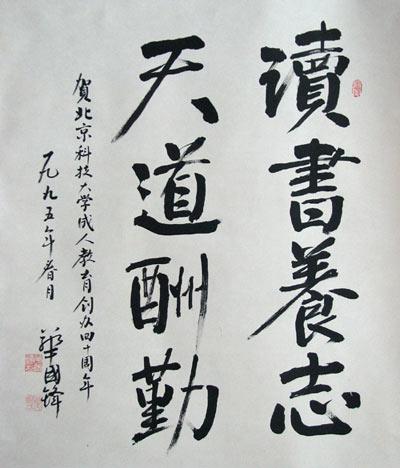 讀書養志
天道酬勤
賀北京科技大学成人教育创办四十周年
一九九五年春月
華國鋒